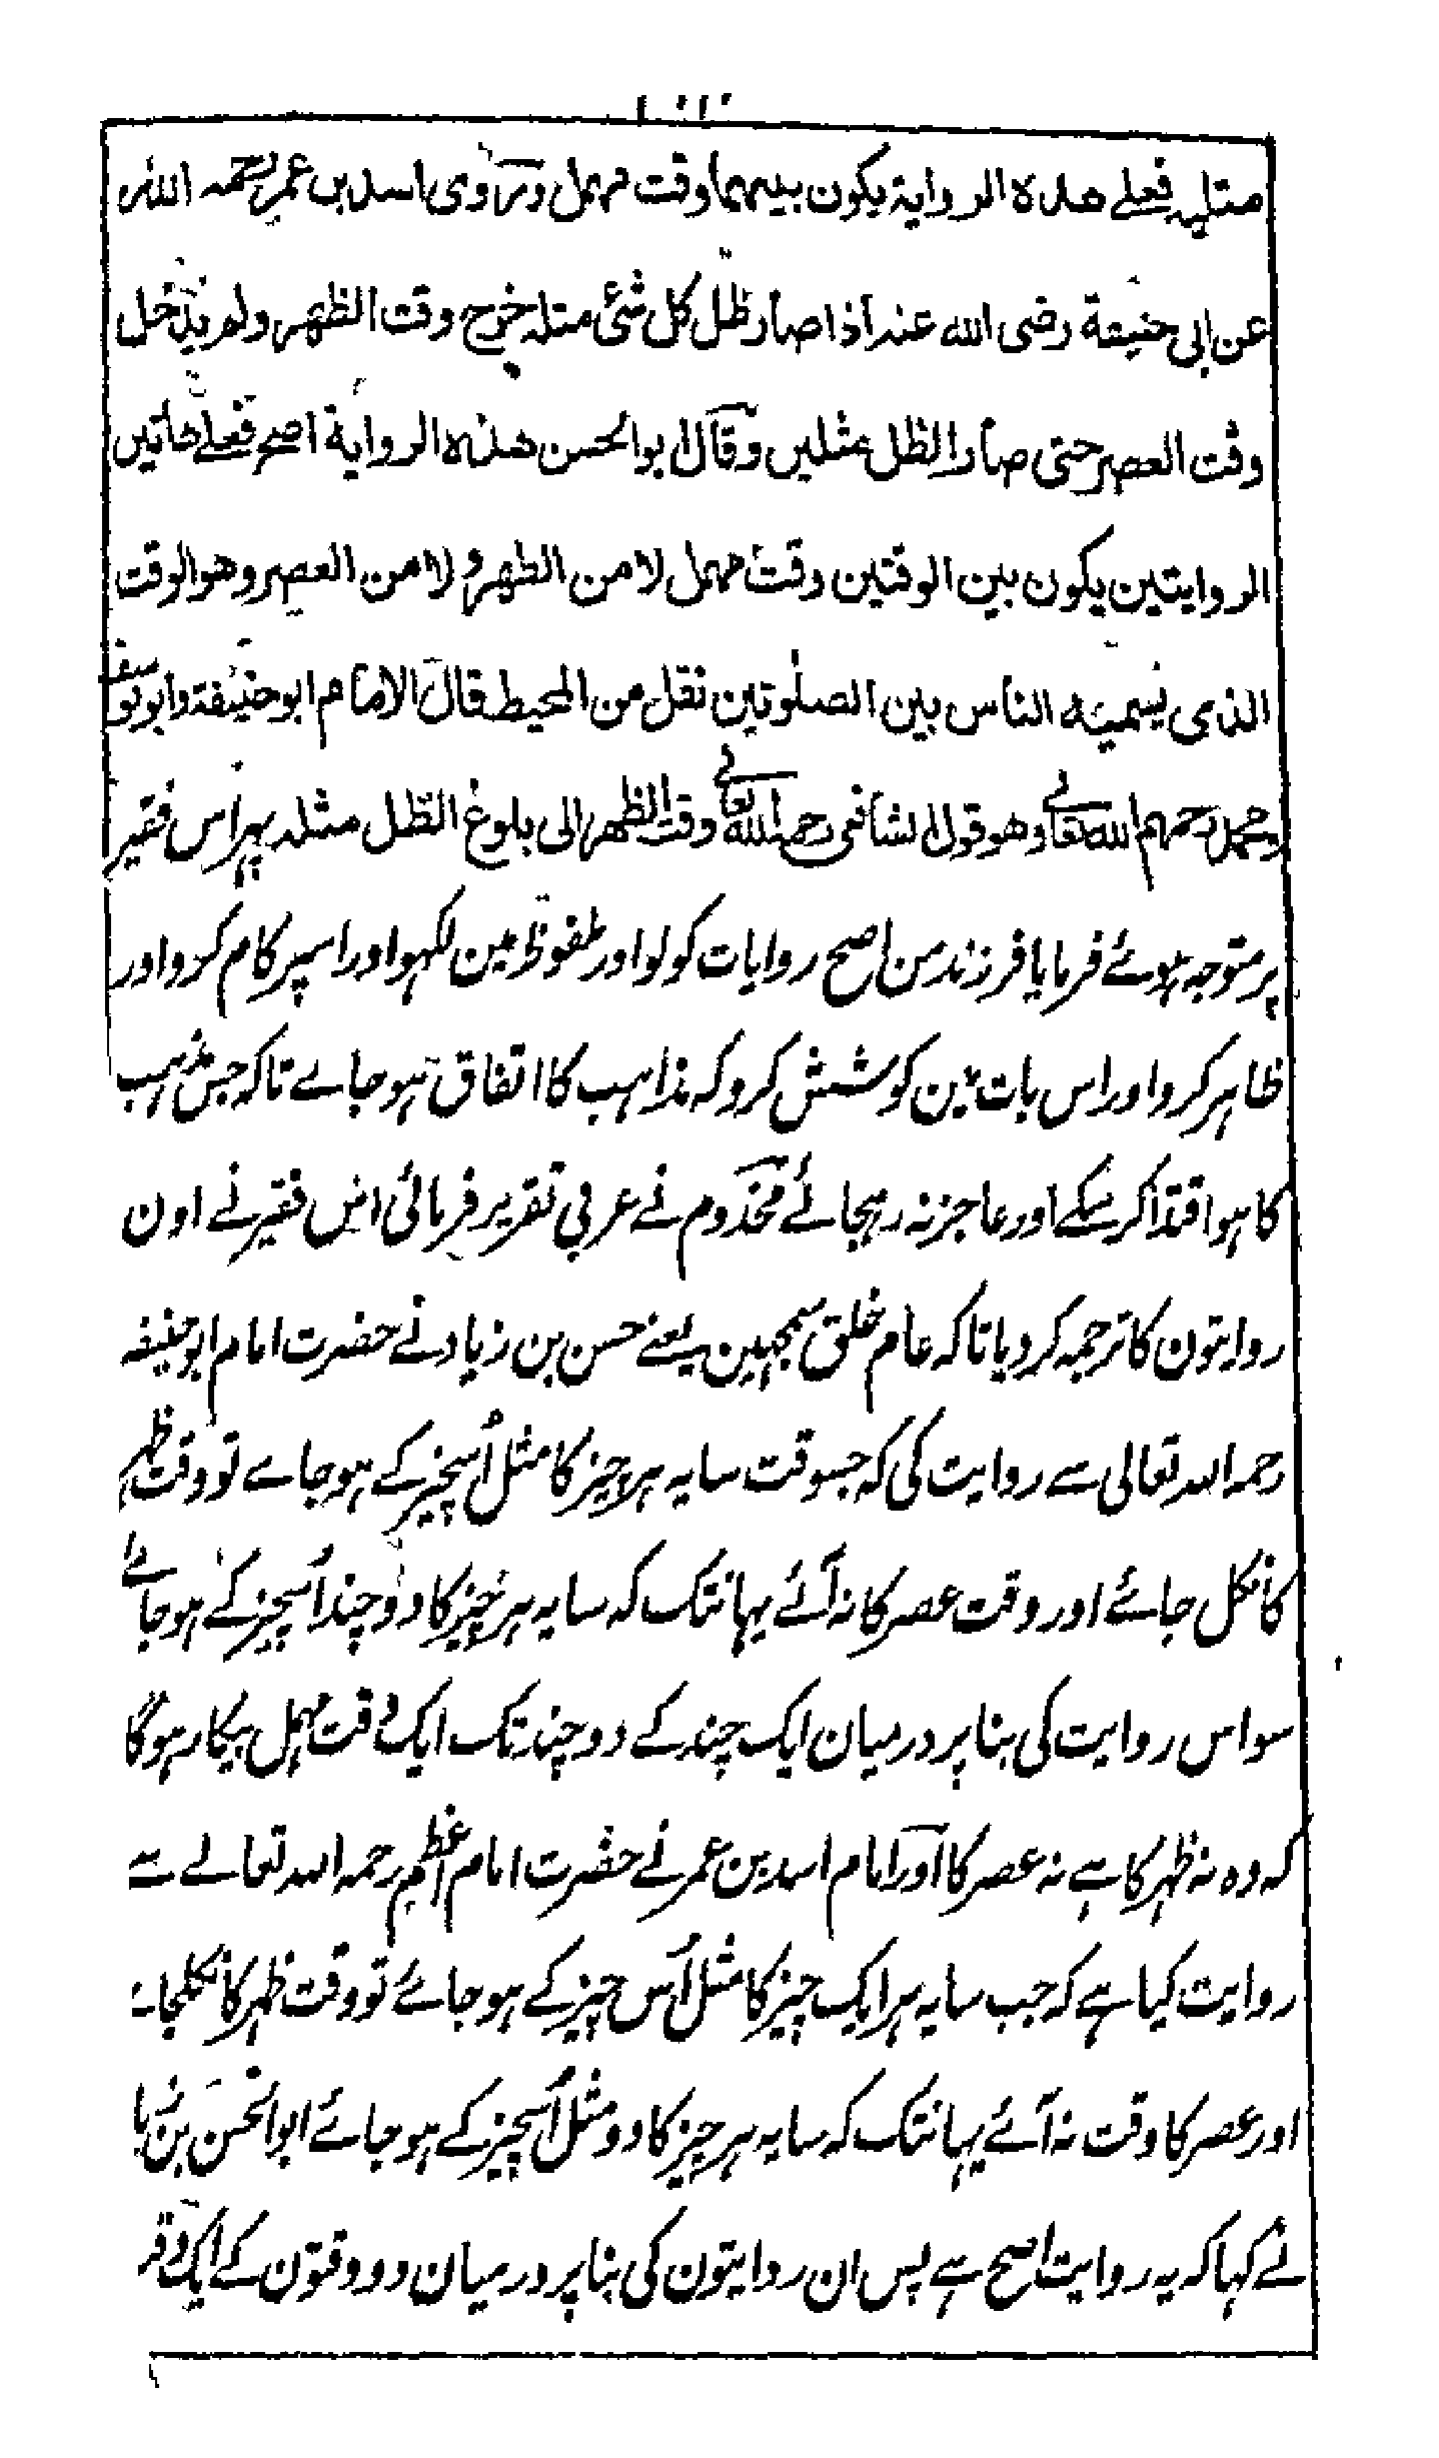 مثليه فعلے هذه الرواية يكون بينهما وقت مهمل وروى اسد بن عمر رحمه الله
عن ابى حنيفة رضى الله عنه اذا صار ظل كل شئ مثله خرج وقت الظهر ولم يدخل
وقت العصر حتى صار الظل مثلين وقال ابو الحسن هذه الرواية اصح فعلے هاتين
الروايتين يكون بين الوقتين وقت مهمل لا من الظهر و لا من العصر وهو الوقت
الذى يسميه الناس بين الصلوتين نقل من المحيط قال الامام ابو حنيفة وابو يوسف
ومحمد رحمهم الله تعالے وهو قول الشافعى رحمه الله تعالے وقت الظهر الى بلوغ الظل مثله پہر اس فقیر
پر متوجہ ہوئے فرمایا فرزند من اصح روایات کو لو اور ملفوظ مین لکھو اور اسپر کام کرو اور
ظاہر کرو اور اس بات مین کوشش کرو کہ مذاہب کا اتفاق ہو جاے تاکہ جس مذہب
کا ہو اقتدا کر سکے اور عاجز نہ رہجائے مخدوم نے عربی تقریر فرمائی اس فقیر نے اون
روایتون کا ترجمہ کر دیا تاکہ عام خلق سمجہین یعنے حسن بن زیاد نے حضرت امام ابو حنیفہ
رحمہ اللہ تعالی سے روایت کی کہ جسوقت سایہ ہر چیز کا مثل اُسچیز کے ہو جاے تو وقت ظہر
کا نکل جائے اور وقت عصر کا نہ آئے یہانتک کہ سایہ ہر چیز کا دو چند اُسچیز کے ہو جائے
سو اس روایت کی بنا پر درمیان ایک چند کے دو چند تک ایک وقت مہمل بیکار ہوگا
کہ وہ نہ ظہر کا ہے نہ عصر کا اور امام اسد بن عمر نے حضرت امام اعظم رحمہ اللہ تعالے سے
روایت کیا ہے کہ جب سایہ ہر ایک چیز کا مثل اُس چیز کے ہو جائے تو وقت ظہر کا نکلجائے
اور عصر کا وقت نہ آئے یہانتک کہ سایہ ہر چیز کا دو مثل اُسچیز کے ہو جائے ابو الحسن بن
نے کہا کہ یہ روایت اصح ہے پس ان روایتون کی بنا پر درمیان دو وقتون کے ایک